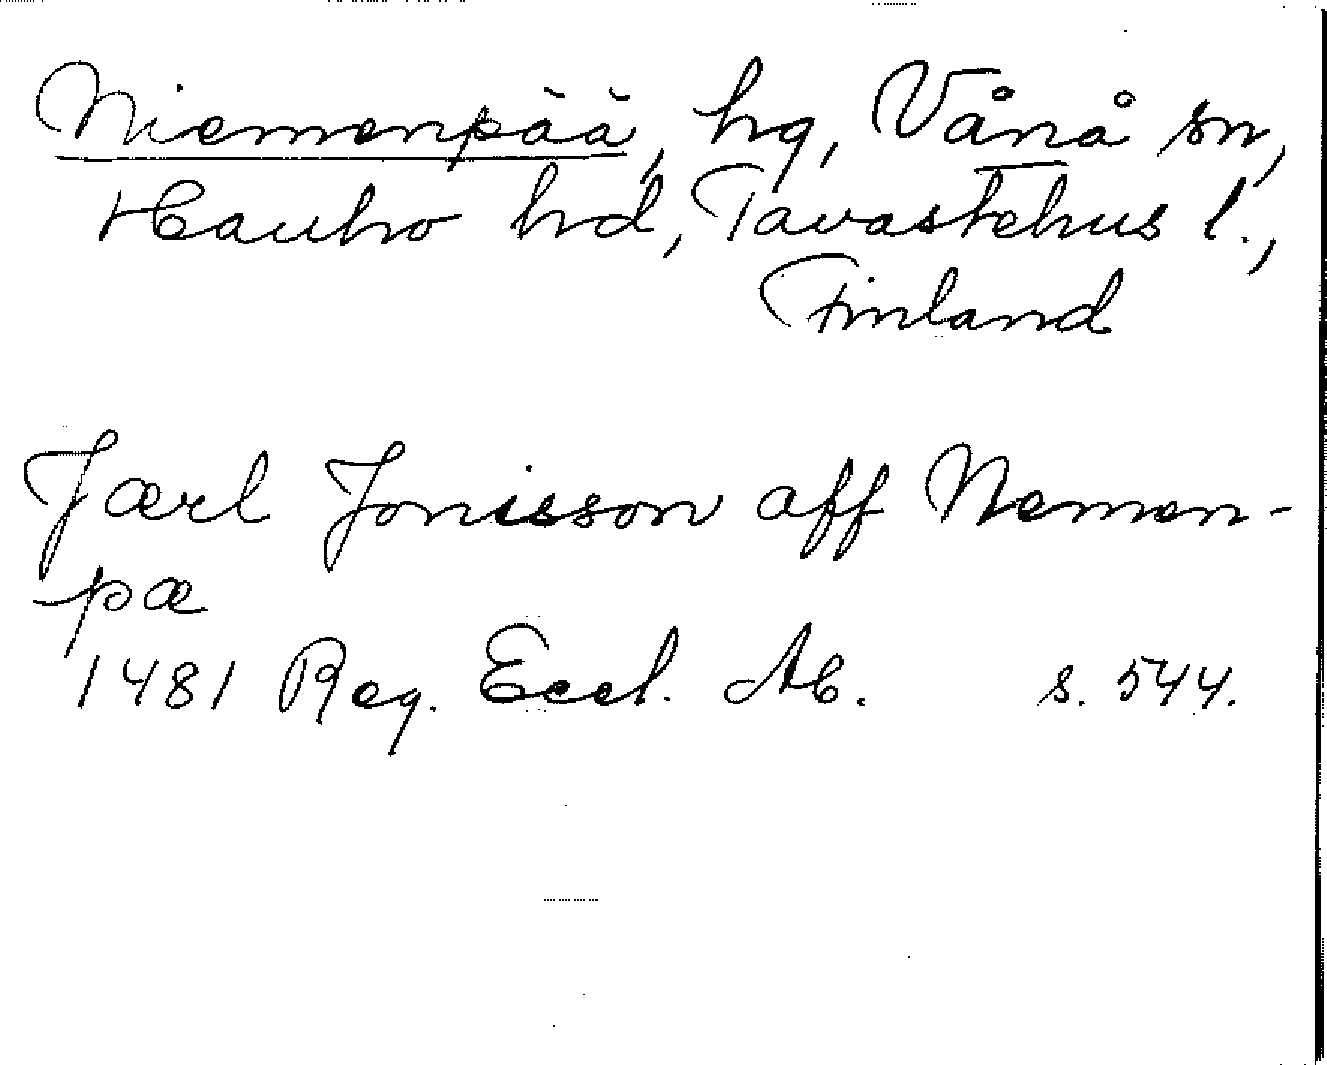 Niemenpää, hg, Vånå sn,
Hauho hd, Tavastehus l.,
Finland
Jærl Jonisson aff Nemen-
pæ
1481 Reg. Eccl. Ab. s. 544.